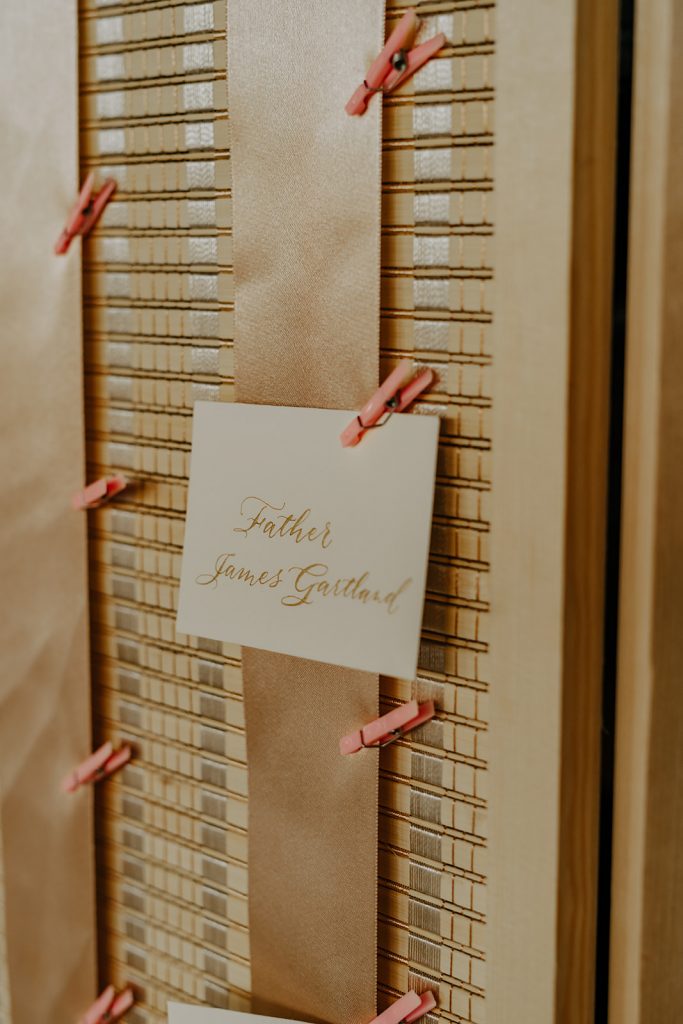 Father
James Gartland